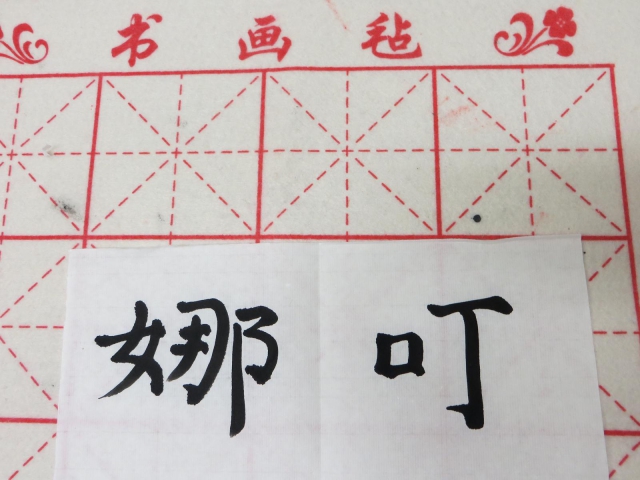 书画毡
娜叮